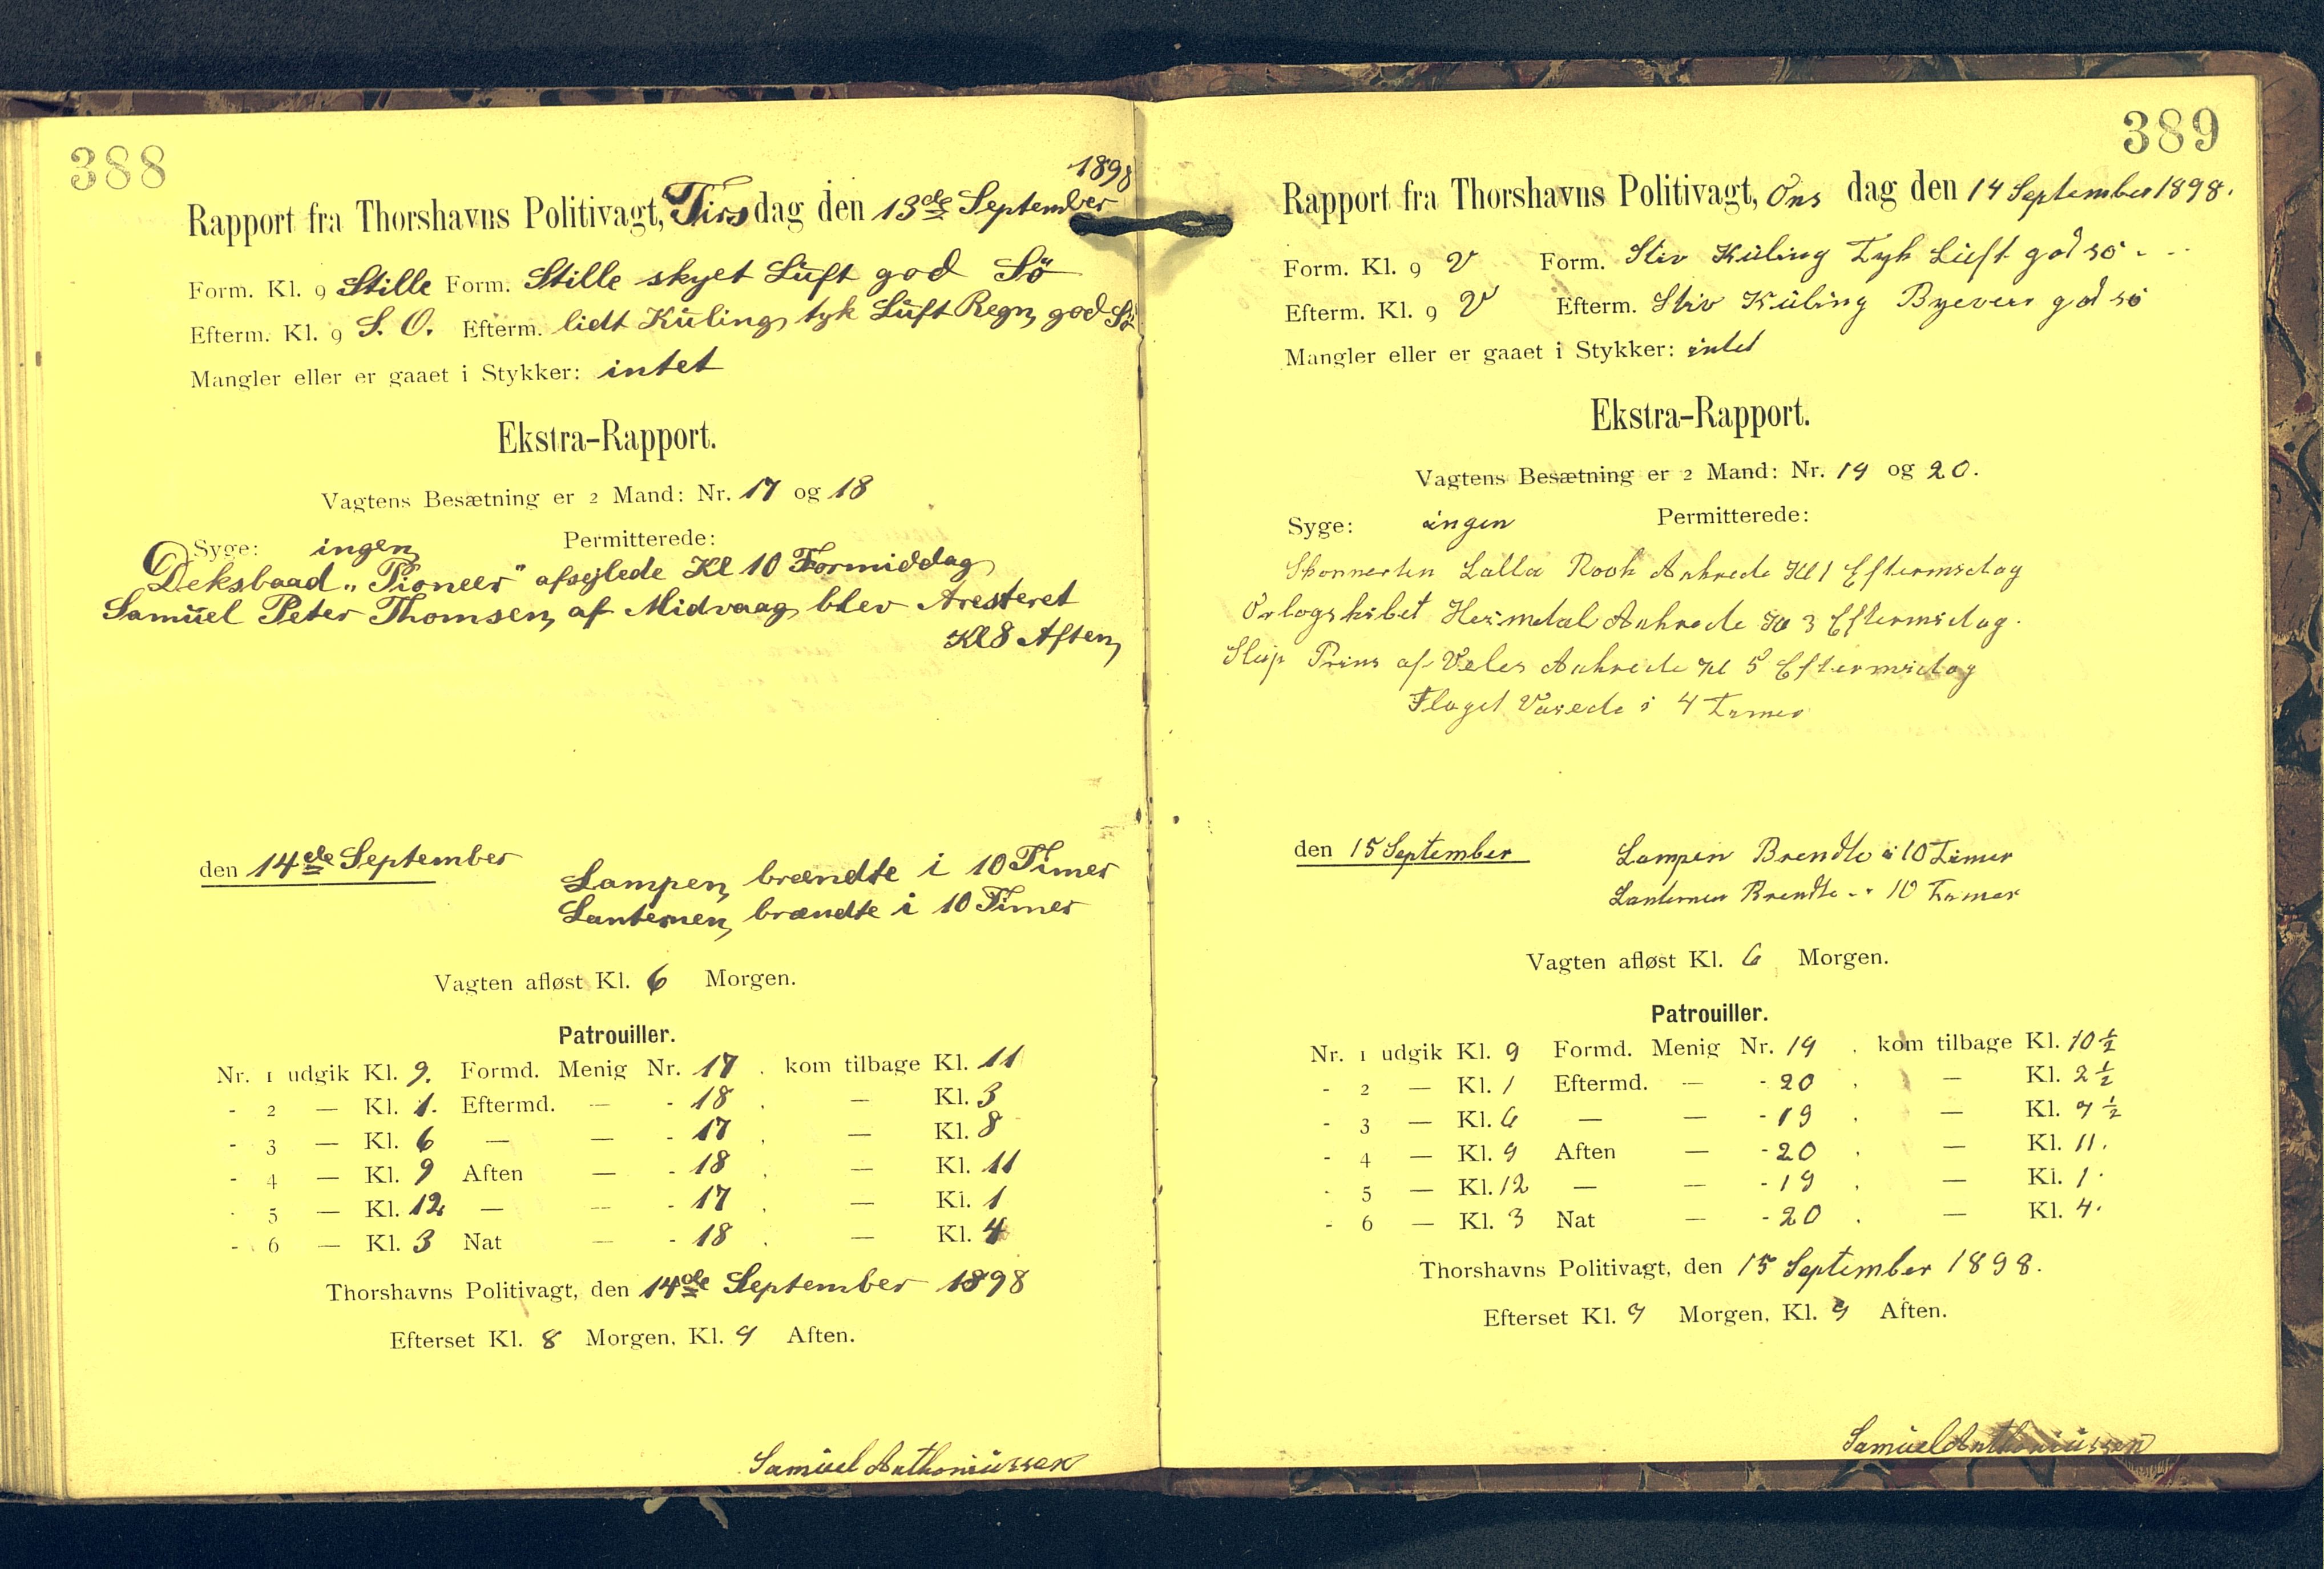 388
1898
Rapport fra Thorshavns Politivagt, Tirsdag den 13de September
Form. Kl. 9 Stille Form. Stille skyet Luft god Sö
Efterm. Kl. 9 S. O. Efterm. lidt Kuling, tyk Luft Regn, god Sö
Mangler eller er gaaet i Stykker: intet
Ekstra-Rapport.
Vagtens Besætning er 2 Mand: Nr. 17 og 18
Syge: ingen Permitterede:
Deksbaad „Pioneer" afsejlede Kl 10 Formiddag
Samuel Peter Thomsen, af Midvaag, blev Aresteret
Kl 8 Aften,
den 14de September
Lampen, brændte i 10 Timer
Lanternen, brændte i 10 Timer
Vagten afløst Kl. 6 Morgen.
Patrouiller.
Nr. 1 udgik Kl. 9. Formd. Menig Nr. 17 . kom tilbage Kl. 11
- 2 — Kl. 1. Eftermd. — - 18 . — Kl. 3
- 3 — Kl. 6 — — - 17 . — Kl. 8
- 4 — Kl. 9 Aften — - 18 . — Kl. 11
- 5 — Kl. 12 — — - 17 . — Kl. 1
- 6 — Kl. 3 Nat — - 18 . — Kl. 4
Thorshavns Politivagt, den 14de September 1898
Efterset Kl. 8 Morgen, Kl. 9 Aften.
Samuel Anthoniussen
389
Rapport fra Thorshavns Politivagt, Ons dag den 14 September 1898.
Form. Kl. 9 V Form. Stiv Kuling Tyk Luft god sö
Efterm. Kl. 9 V Efterm. Stiv Kuling Byeveir god sö
Mangler eller er gaaet i Stykker: intet
Ekstra-Rapport.
Vagtens Besætning er 2 Mand: Nr. 19 og 20.
Syge: ingen Permitterede:
Skonnerten Lalla Rook Ankrede Kl 1 Eftermidag
Orlogskibet Heimdal Ankrede Kl 3 Eftermidag.
Slup Prins af Veles Ankrede Kl 5 Eftermidag
Flaget Varede i 4 Timer
den 15 September
Lampen Brendte i 10 Timer
Lanternen Brendte - " 10 Timer
Vagten afløst Kl. 6 Morgen.
Patrouiller.
Nr. 1 udgik Kl. 9 Formd. Menig Nr. 19 . kom tilbage Kl. 10 ½
- 2 — Kl. 1 Eftermd. — - 20 . — Kl. 2 ½
- 3 — Kl. 6 — — - 19 . — Kl. 7 ½
- 4 — Kl. 9 Aften — - 20 . — Kl. 11.
- 5 — Kl. 12 — — - 19 . — Kl. 1.
- 6 — Kl. 3 Nat — - 20 . — Kl. 4.
Thorshavns Politivagt, den 15 September 1898.
Efterset Kl. 9 Morgen, Kl. 9 Aften.
Samuel Anthoniussen